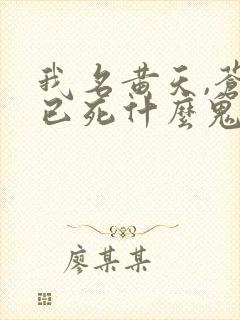 我名黄天,苍
已死什麼鬼
廖某某